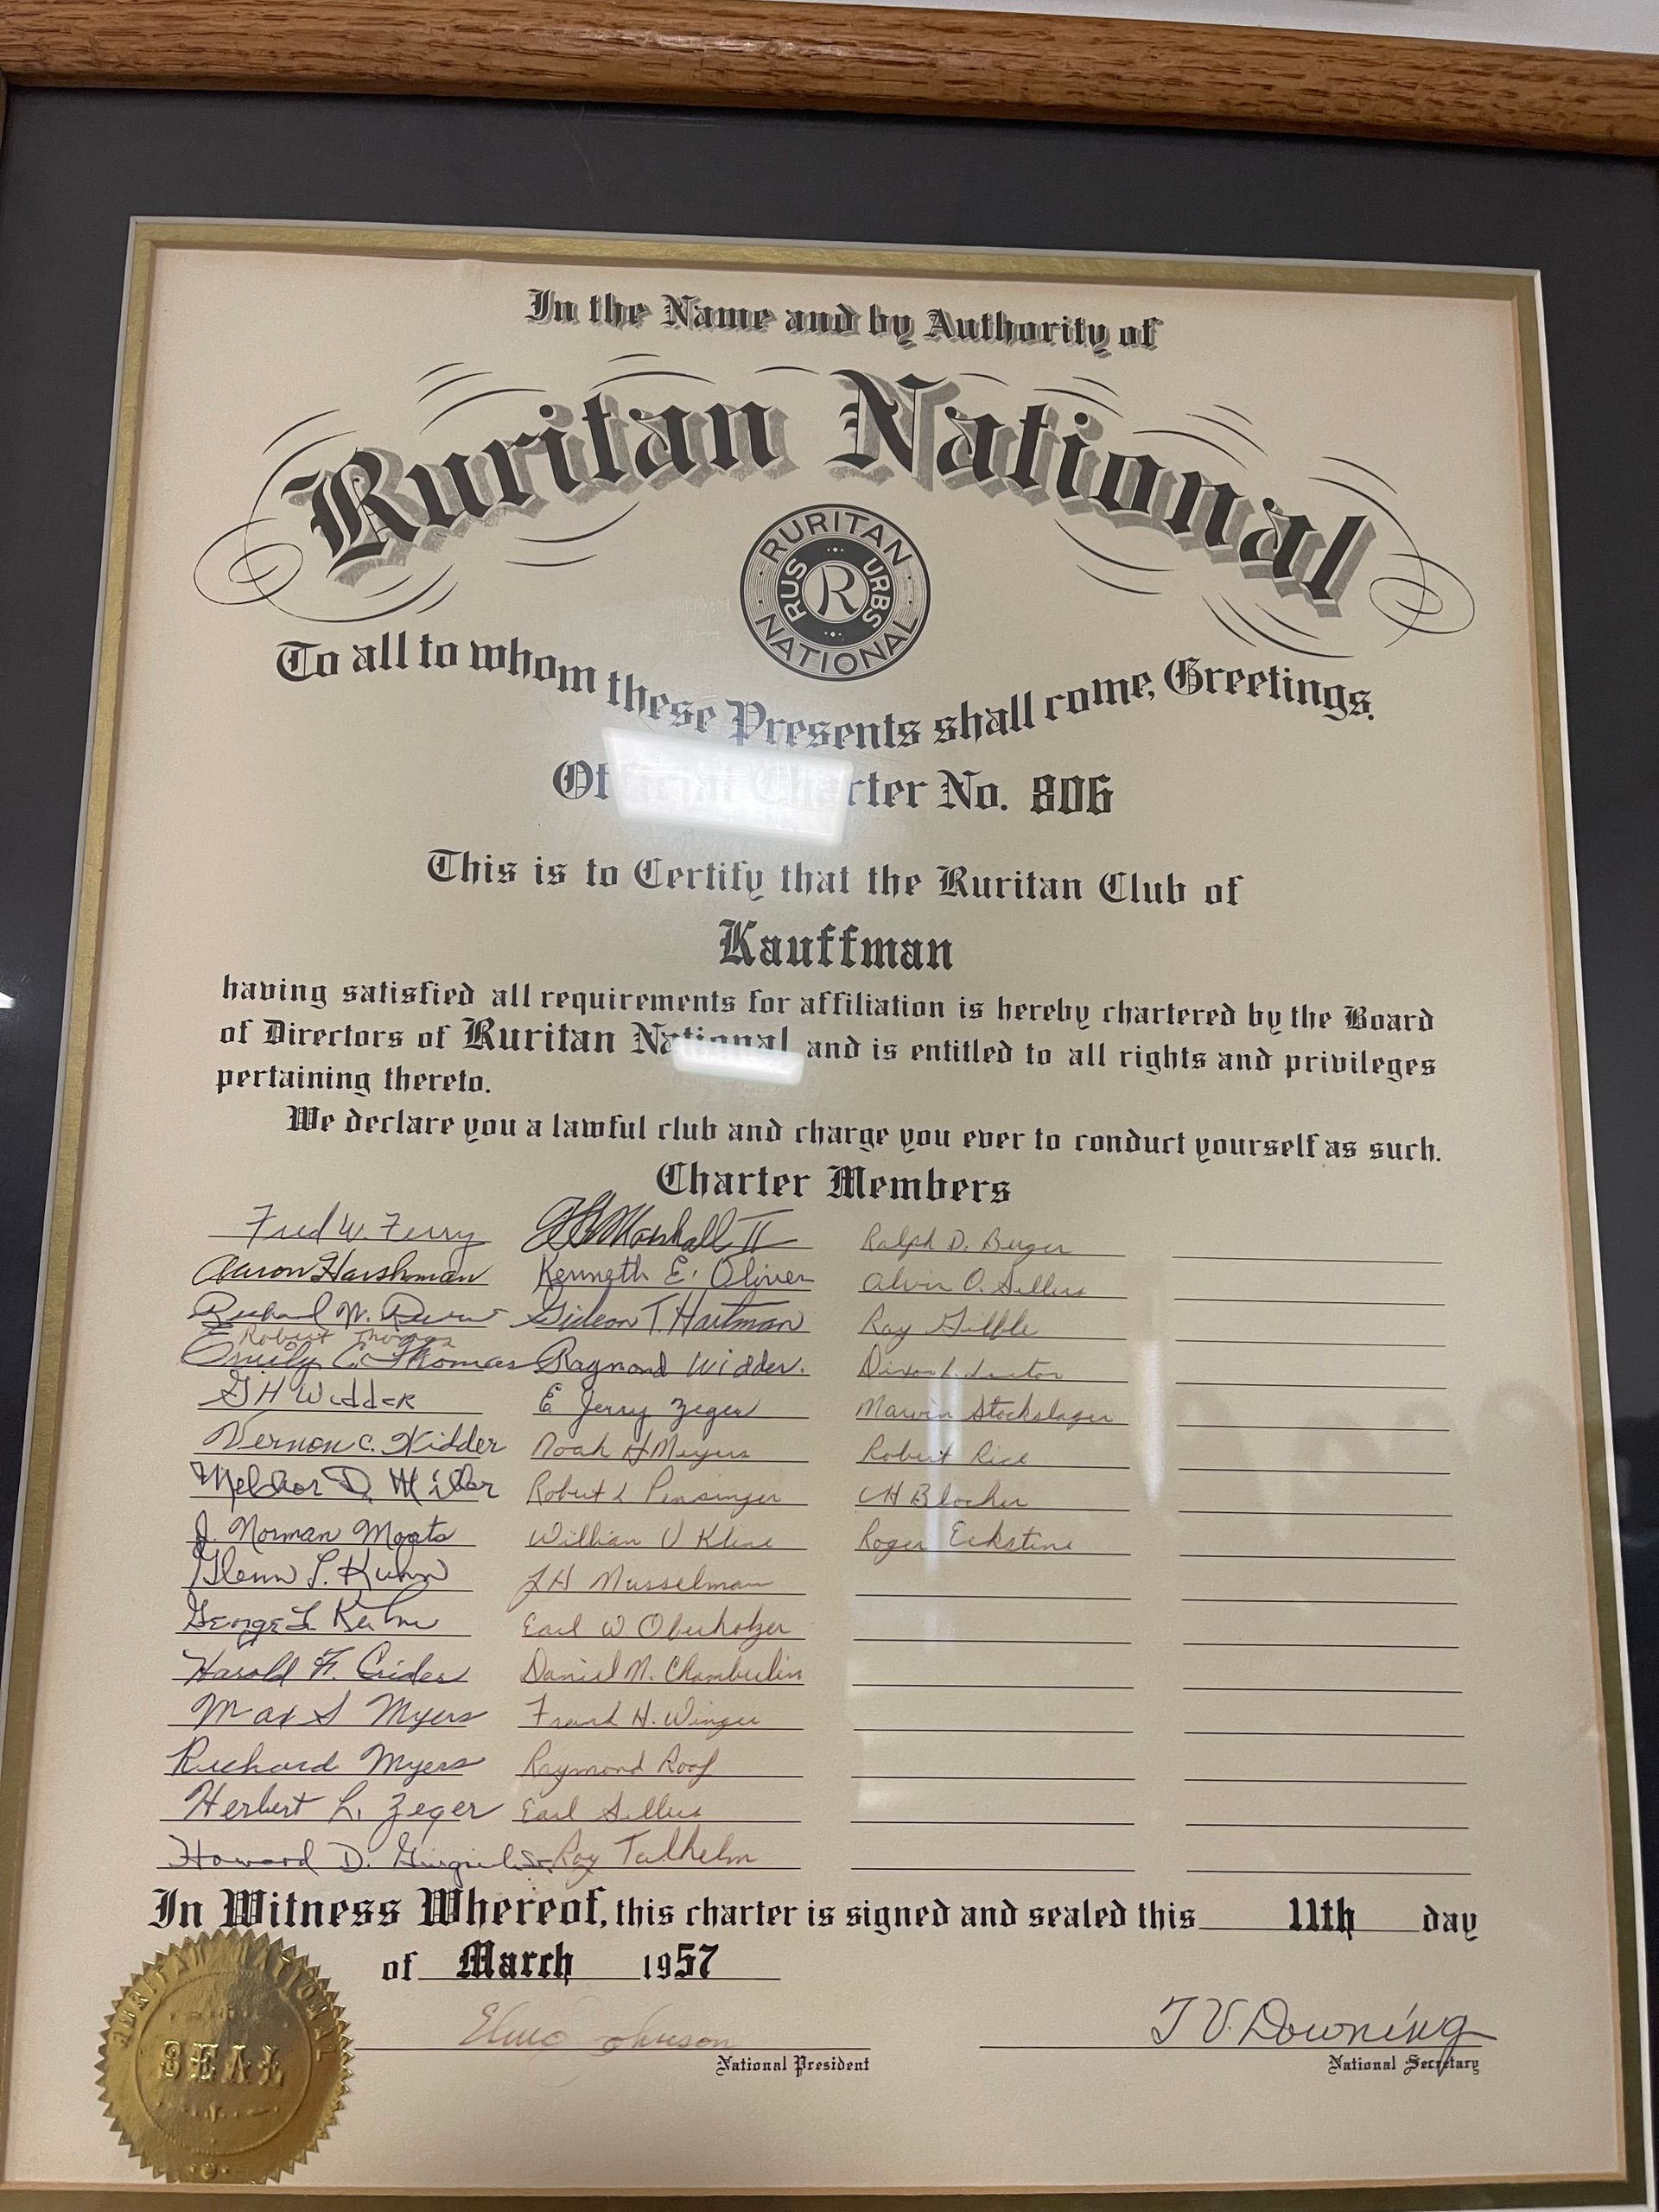 In the Name and by Authority of
Ruritan National
RURITAN
RUS R URBS
NATIONAL
To all to whom these Presents shall come, Greetings.
Official Charter No. 806
This is to Certify that the Ruritan Club of
Kauffman
having satisfied all requirements for affiliation is hereby chartered by the Board
of Directors of Ruritan National and is entitled to all rights and privileges
pertaining thereto.
We declare you a lawful club and charge you ever to conduct yourself as such.
Charter Members
Fred W. Ferry
Aaron Harshman
Richard W.
Robert Thomas
Emily C. Thomas
G H Widder
Vernon C. Kidder
Melchor D. Miller
J. Norman Moats
Glenn L. Kuhn
George L. Kuhn
Harold F. Crider
Max S Myers
Richard Myers
Herbert L. Zeger
Howard D. Gingrich Sr.
Marshall II
Kenneth E. Oliver
Gideon T. Hartman
Raymond Widder.
E Jerry Zeger
Noah H Meyers
Robert L Pensinger
William V Kline
J H Musselman
Earl W Oberholzer
Daniel N. Chamberlin
Frank H. Winger
Raymond Roof
Earl Sellers
Roy Talhelm
Ralph D. Burger
Alvin O. Sellers
Ray Gilble
Dixon L.
Marvin Stockslager
Robert Rice
C H Blocher
Roger Eckstine
In Witness Whereof, this charter is signed and sealed this 11th day
of March 1957
Elmo Johnson
National President
T V. Downing
National Secretary
RURITAN NATIONAL
SEAL